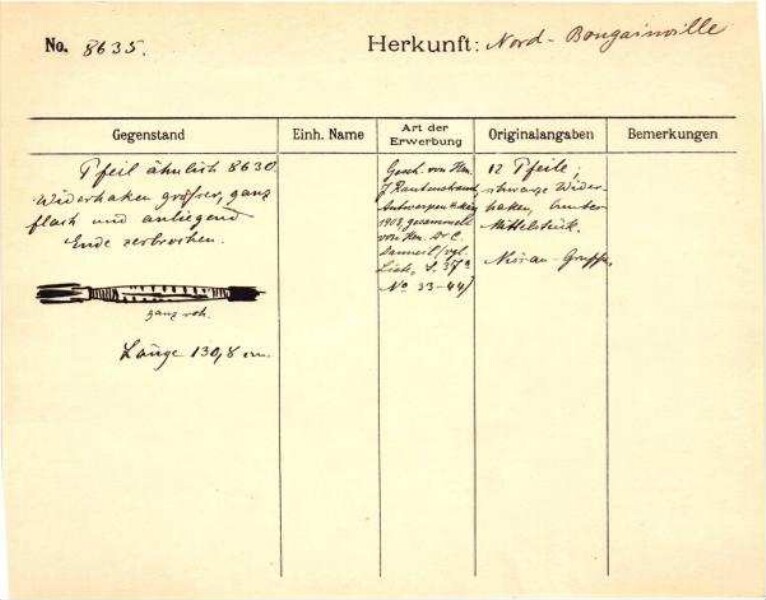 No. 8635.
Herkunft: Nord-Bougainville
Gegenstand
Einh. Name
Art der Erwerbung
Originalangaben
Bemerkungen
Pfeil ähnlich 8630
Widerhaken größer, ganz
flach und anliegend
Ende zerbrochen.
ganz roh.
Länge 130,8 cm.
Gesch. von Hrn.
Rautenstrauch
Antwerpen
1903, gesammelt
von Hrn. Dr C.
vgl.
Liste, S. 37a
No 33-44)
12 Pfeile;
schwarze Wider-
haken, bunter
Mittelstück.
Nissan-Gruppe.